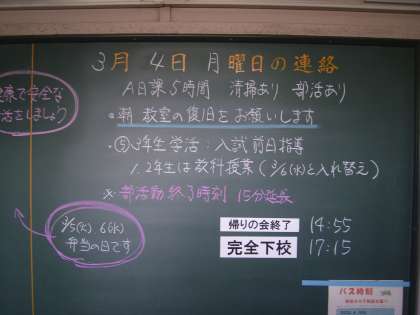 3月 4日 月曜日の連絡
A日課5時間 清掃あり 部活あり
康で安全な
活をしましょう
◎朝 教室の復旧をお願いします
・⑤3年生学活:入試前日指導
1.2年生は教科授業(3/6(水)と入れ替え)
※部活動終了時刻 15分延長
3/5(火) 6(水)
弁当の日です
帰りの会終了 14:55
完全下校 17:15
バス時刻